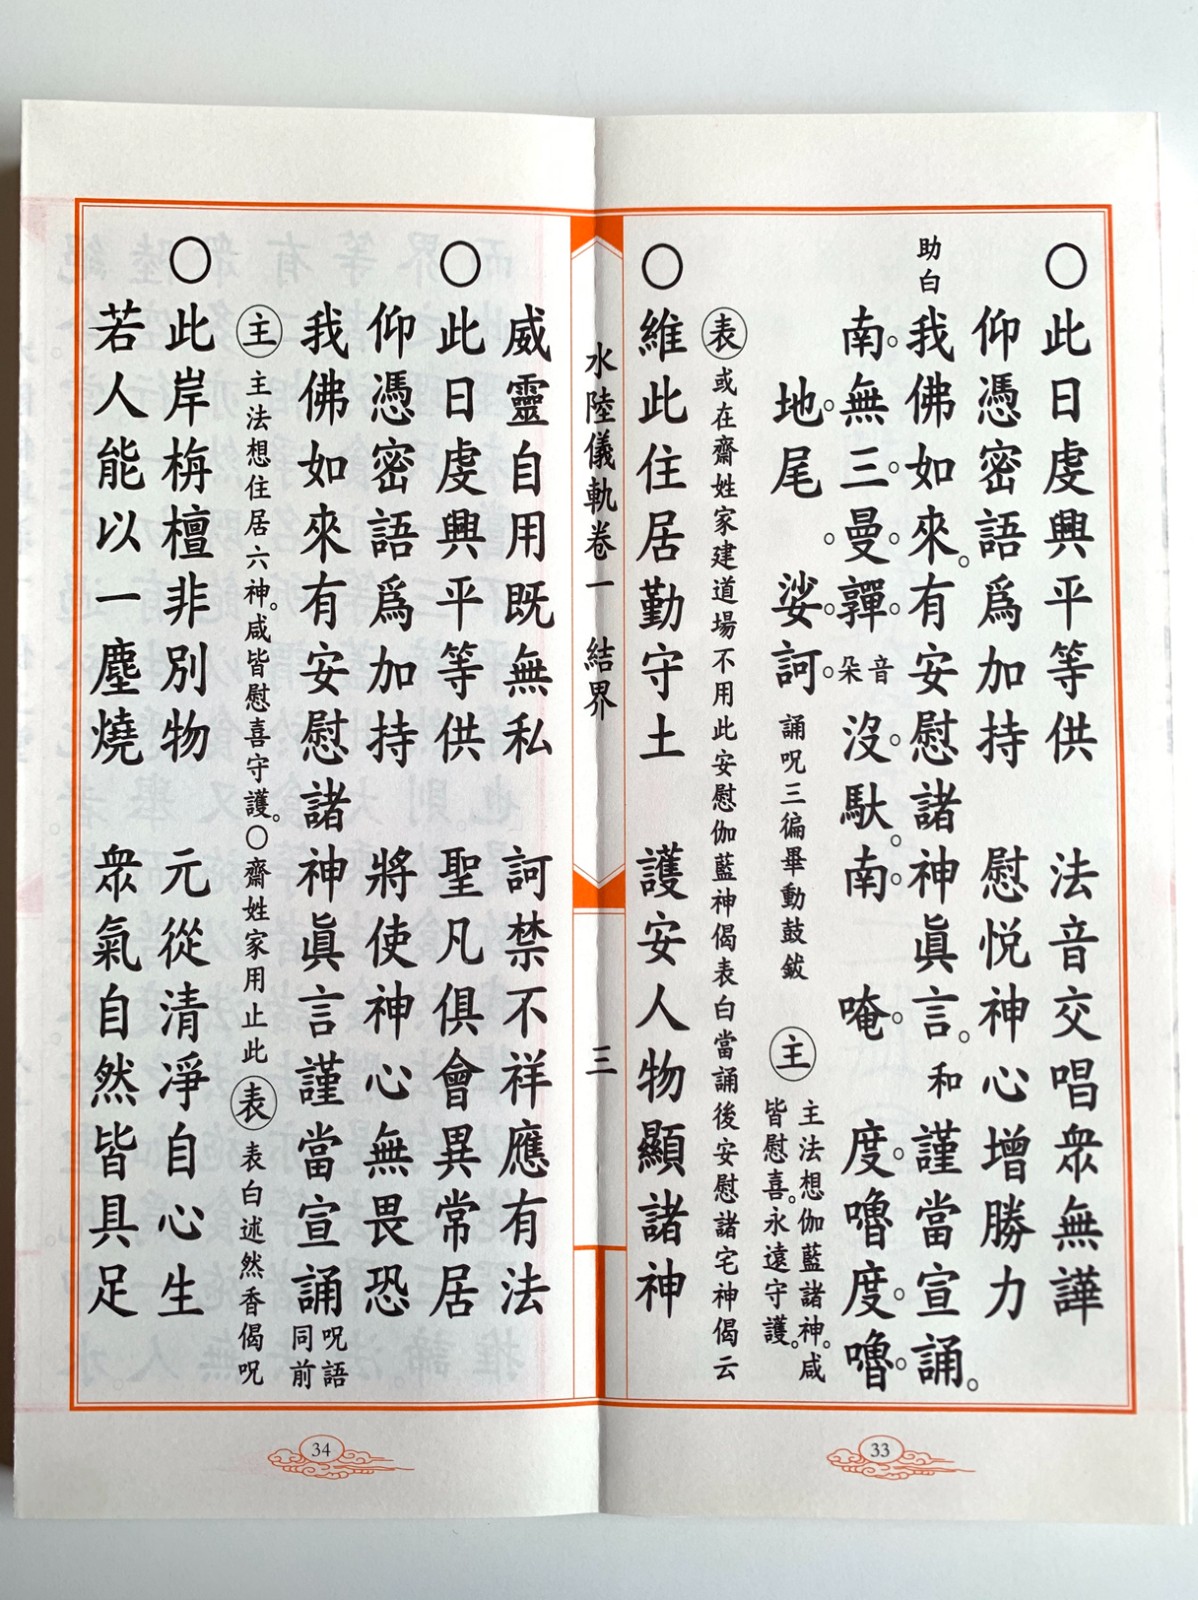 ○此日虔興平等供　法音交唱眾無譁
仰憑密語爲加持　慰悅神心增勝力
助白
我佛如來。有安慰諸神眞言。和謹當宣誦。
南無三曼嚲朵音沒馱南　唵　度嚕度嚕
地尾　娑訶　誦呪三徧畢動鼓鈸　主　主法想伽藍諸神。咸
皆慰喜。永遠守護。
表　或在齋姓家建道場不用此安慰伽藍神偈表白當誦後安慰諸宅神偈云
○維此住居勤守土　護安人物顯諸神
33
水陸儀軌卷一　結界　三
威靈自用既無私　訶禁不祥應有法
○此日虔興平等供　聖凡俱會異常居
仰憑密語爲加持　將使神心無畏恐
我佛如來有安慰諸神眞言謹當宣誦呪語
同前
主　主法想住居六神。咸皆慰喜守護。○齋姓家用止此　表　表白述然香偈呪
○此岸栴檀非別物　元從清淨自心生
若人能以一塵燒　眾氣自然皆具足
34